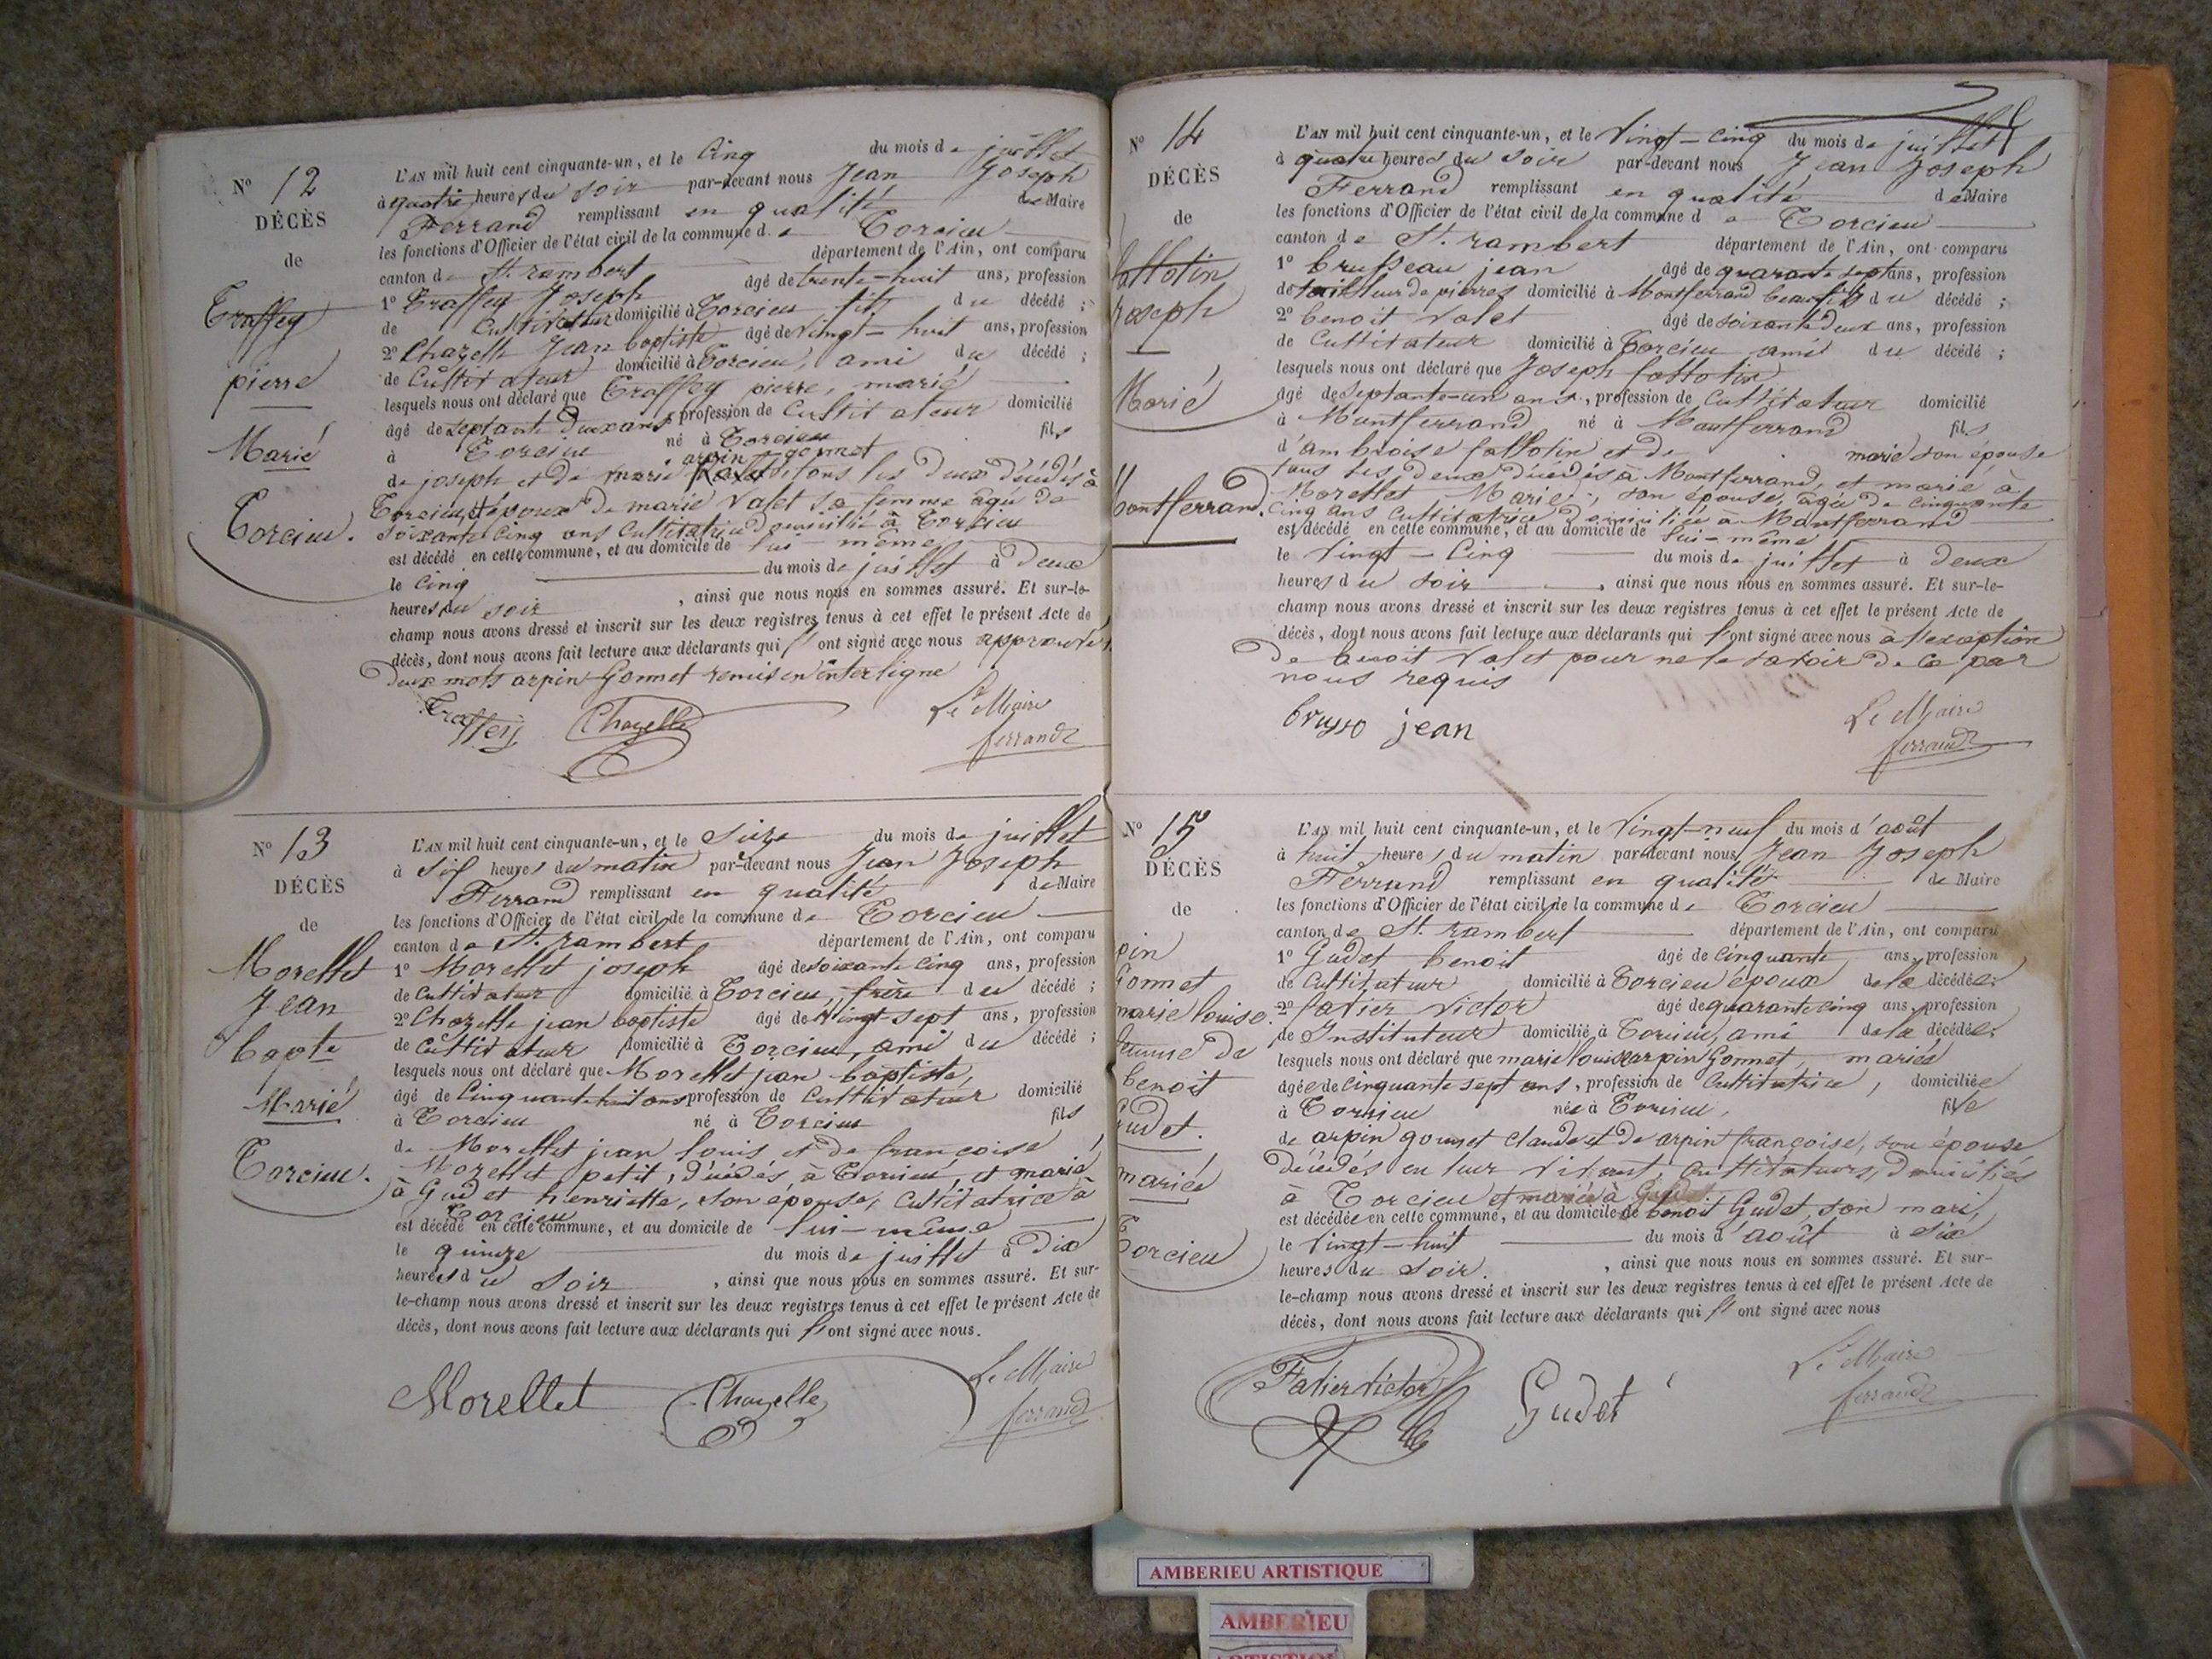 N° 12
DÉCÈS
de
Traffey
pierre
Marié
Torcieu.
L'AN mil huit cent cinquante-un, et le Cinq du mois de juillet
à quatre heures du soir par-devant nous Jean Joseph
Ferrand remplissant en qualité de Maire
les fonctions d'Officier de l'état civil de la commune de Torcieu
canton de St. rambert département de l'Ain, ont comparu
1° Traffey Joseph âgé de trente-huit ans, profession
de Cultivateur domicilié à Torcieu fils du décédé ;
2° Chazelle Jean baptiste âgé de Vingt-huit ans, profession
de Cultivateur domicilié à Torcieu, ami du décédé ;
lesquels nous ont déclaré que Traffey pierre, marié
âgé de septante deux ans, profession de Cultivateur domicilié
à Torcieu né à Torcieu fils
arpin-gonnet
de joseph et de marie tous les deux décédés à
Torcieu, époux de marie Valet sa femme âgée de
soixante cinq ans Cultivatrice domicilié à Torcieu
est décédé en cette commune, et au domicile de lui-même
le Cinq du mois de juillet à Deux
heures du soir , ainsi que nous nous en sommes assuré. Et sur-le-
champ nous avons dressé et inscrit sur les deux registres tenus à cet effet le présent Acte de
décès, dont nous avons fait lecture aux déclarants qui l'ont signé avec nous approuvé
Deux mots arpin Gonnet remis en interligne
Traffey Chazelle Le Maire
ferrand
N° 13
DÉCÈS
de
Morellet
Jean
bapte
Marié
Torcieu.
L'AN mil huit cent cinquante-un, et le Seize du mois de juillet
à Six heures du matin par-devant nous Jean Joseph
Ferrand remplissant en qualité de Maire
les fonctions d'Officier de l'état civil de la commune de Torcieu
canton de St. rambert département de l'Ain, ont comparu
1° Morellet joseph âgé de soixante cinq ans, profession
de Cultivateur domicilié à Torcieu, frère du décédé ;
2° Chazelle jean baptiste âgé de Vingt-sept ans, profession
de Cultivateur domicilié à Torcieu, ami du décédé ;
lesquels nous ont déclaré que Morellet jean baptiste,
âgé de Cinquante huit ans profession de Cultivateur domicilié
à Torcieu né à Torcieu fils
de Morellet jean louis et de françoise
Morellet petit, décédés à Torcieu, et marié
à Gudet henriette, son épouse, Cultivatrice à
Torcieu
est décédé en cette commune, et au domicile de lui-même
le quinze du mois de juillet à Dix
heures du soir , ainsi que nous nous en sommes assuré. Et sur-
le-champ nous avons dressé et inscrit sur les deux registres tenus à cet effet le présent Acte de
décès, dont nous avons fait lecture aux déclarants qui l'ont signé avec nous.
Morellet Chazelle Le Maire
ferrand
N° 14
DÉCÈS
de
fallotin
joseph
Marié
Montferrand.
L'AN mil huit cent cinquante-un, et le Vingt-cinq du mois de juillet
à quatre heures du soir par-devant nous Jean Joseph
Ferrand remplissant en qualité de Maire
les fonctions d'Officier de l'état civil de la commune de Torcieu
canton de St. rambert département de l'Ain, ont comparu
1° brusseau jean âgé de quarante sept ans, profession
de tailleur de pierres domicilié à Montferrand beau fils du décédé ;
2° benoit Valet âgé de soixante deux ans, profession
de Cultivateur domicilié à Torcieu ami du décédé ;
lesquels nous ont déclaré que Joseph fallotin
âgé de septante-un ans, profession de Cultivateur domicilié
à Montferrand né à Montferrand fils
d'ambroise fallotin et de marie son épouse
tous les deux décédés à Montferrand, et marié à
Morellet Marie, son épouse, âgée de cinquante
Cinq ans Cultivatrice domiciliée à Montferrand
est décédé en cette commune, et au domicile de lui-même
le Vingt-Cinq du mois de juillet à Deux
heures du soir , ainsi que nous nous en sommes assuré. Et sur-le-
champ nous avons dressé et inscrit sur les deux registres tenus à cet effet le présent Acte de
décès, dont nous avons fait lecture aux déclarants qui l'ont signé avec nous à l'exception
de benoit Valet pour ne le savoir de ce par
nous requis
brusso jean Le Maire
ferrand
N° 15
DÉCÈS
de
pin
Gonnet
marie louise.
femme de
benoit
Gudet.
mariée
Torcieu
L'AN mil huit cent cinquante-un, et le Vingt-neuf du mois d'août
à huit heures du matin par-devant nous Jean Joseph
Ferrand remplissant en qualité de Maire
les fonctions d'Officier de l'état civil de la commune de Torcieu
canton de St. rambert département de l'Ain, ont comparu
1° Gudet benoit âgé de cinquante ans, profession
de Cultivateur domicilié à Torcieu époux de la décédée ;
2° fatier Victor âgé de quarante cinq ans, profession
de Instituteur domicilié à Torcieu, ami de la décédée ;
lesquels nous ont déclaré que marie louise arpin Gonnet, mariée
âgée de cinquante sept ans, profession de Cultivatrice, domiciliée
à Torcieu née à Torcieu, fille
de arpin gonnet claude et de arpin françoise, son épouse
décédés en leur vivant, Cultivateurs, domiciliés
à Torcieu et mariée à Gudet
est décédée en cette commune, et au domicile de benoit Gudet, son mari,
le Vingt-huit du mois d'août à six
heures du soir. , ainsi que nous nous en sommes assuré. Et sur-
le-champ nous avons dressé et inscrit sur les deux registres tenus à cet effet le présent Acte de
décès, dont nous avons fait lecture aux déclarants qui l'ont signé avec nous
Fatier Victor Gudet Le Maire
ferrand
AMBERIEU ARTISTIQUE
AMBERIEU
ARTISTIQUE